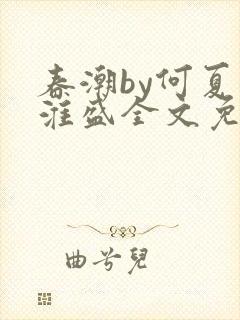 春潮by何夏
淮盛全文免
曲兮兒